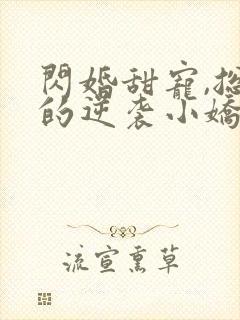 閃婚甜寵,總
的逆袭小嬌
流宣熏草